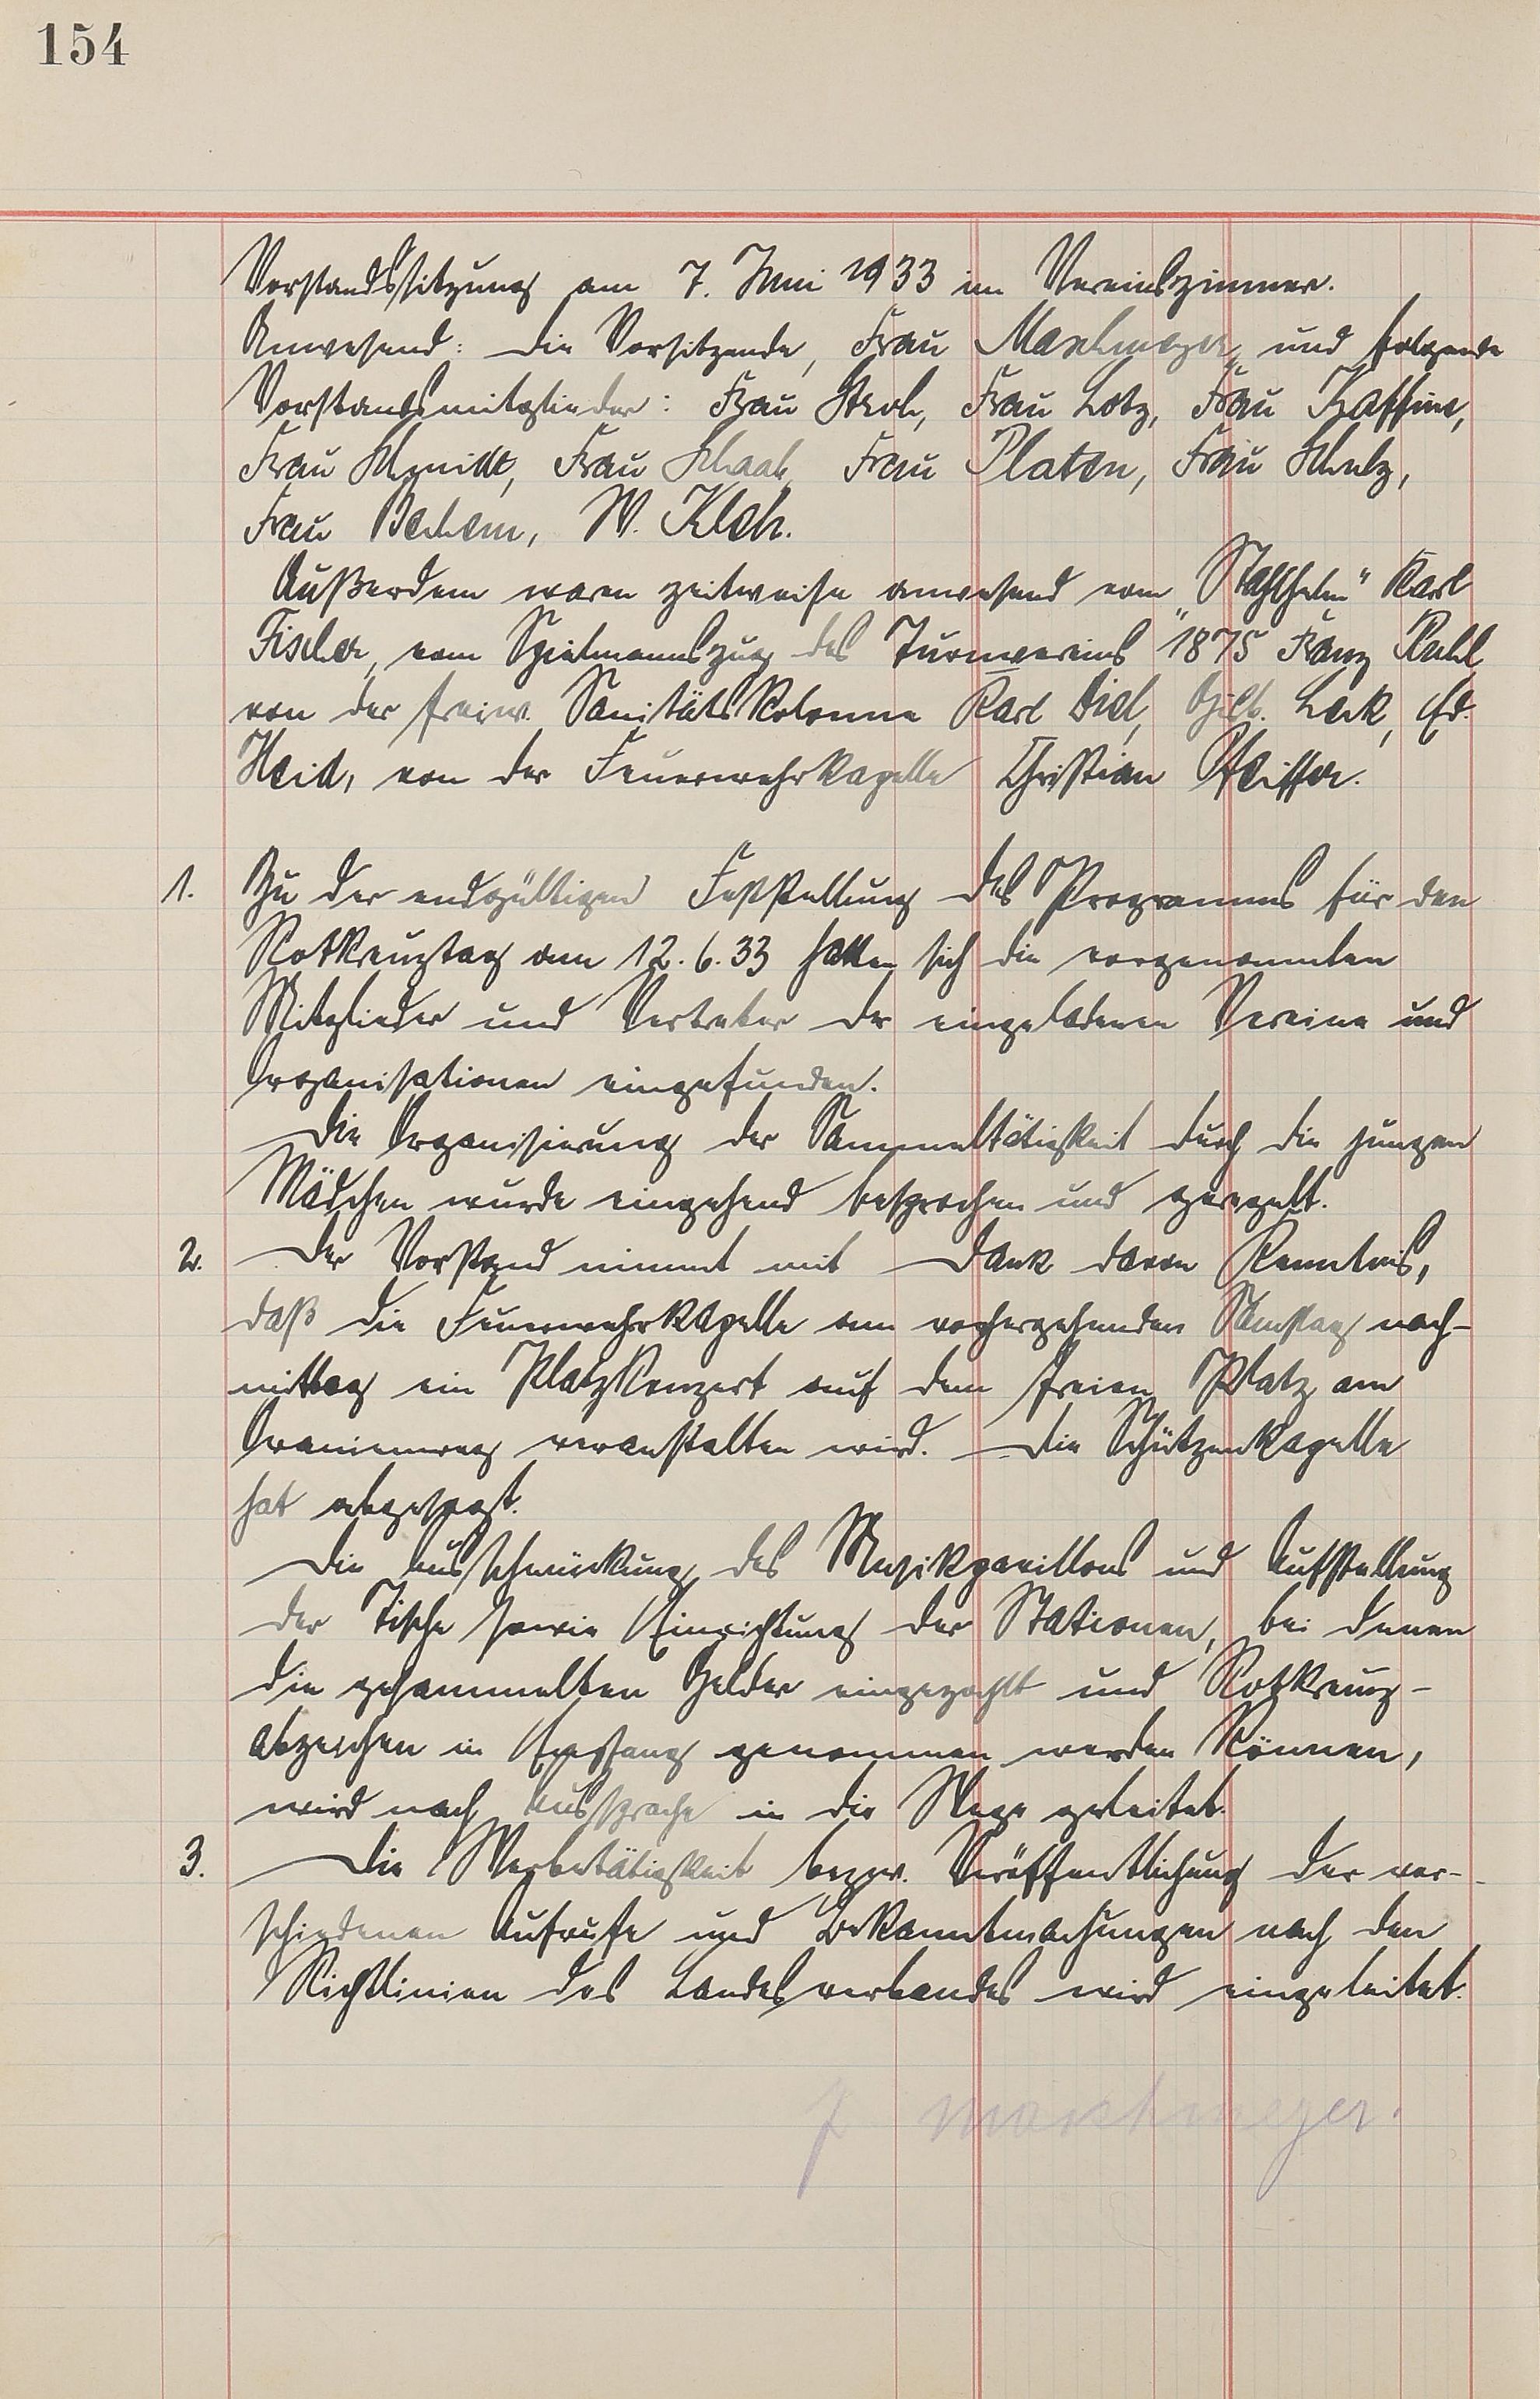 154
Vorstandssitzung am 7. Juni 1933 im Vereinszimmer.
Anwesend: Die Vorsitzende, Frau Maschmeyer, und folgende
Vorstandsmitglieder: Frau Stroh, Frau Lotz, Frau Kaffine,
Frau Schmidt, Frau Schaab, Frau Platen, Frau Schulz,
Frau Bechem, W. Kleh.
Außerdem waren zeitweise anwesend vom „Stahlhelm" Karl
Fischer, vom Spielmannszug des Turnvereins 1875 Franz Ruhl
von der freiw. Sanitätskolonne Karl Diel, Lack, Ed.
Heid, von der Feuerwehrkapelle Christian Pfeiffer.
1. Zu der endgültigen Feststellung des Programms für den
Rotkreuztag am 12.6.33 hatten sich die vorgenannten
Mitglieder und Vertreter der eingeladenen Vereine und
Organisationen eingefunden.
Die Organisierung der Sammeltätigkeit durch die jungen
Mädchen wurde eingehend besprochen und geregelt.
2. Der Vorstand nimmt mit Dank davon Kenntnis,
daß die Feuerwehrkapelle am vorhergehenden Samstag nach-
mittag ein Platzkonzert auf dem freien Platz am
Oranienweg veranstalten wird. Die Schützenkapelle
hat abgesagt.
Die Ausschmückung des Musikpavillons und Aufstellung
der Tische sowie Einrichtung der Stationen, bei denen
die gesammelten Gelder eingezahlt und Rotkreuz-
abzeichen in Empfang genommen werden können,
wird nach Aussprache in die Wege geleitet.
3. Die Werbetätigkeit bezw. Veröffentlichung der ver-
schiedenen Aufrufe und Bekanntmachungen nach den
Richtlinien des Landesverbandes wird eingeleitet.
Maschmeyer.